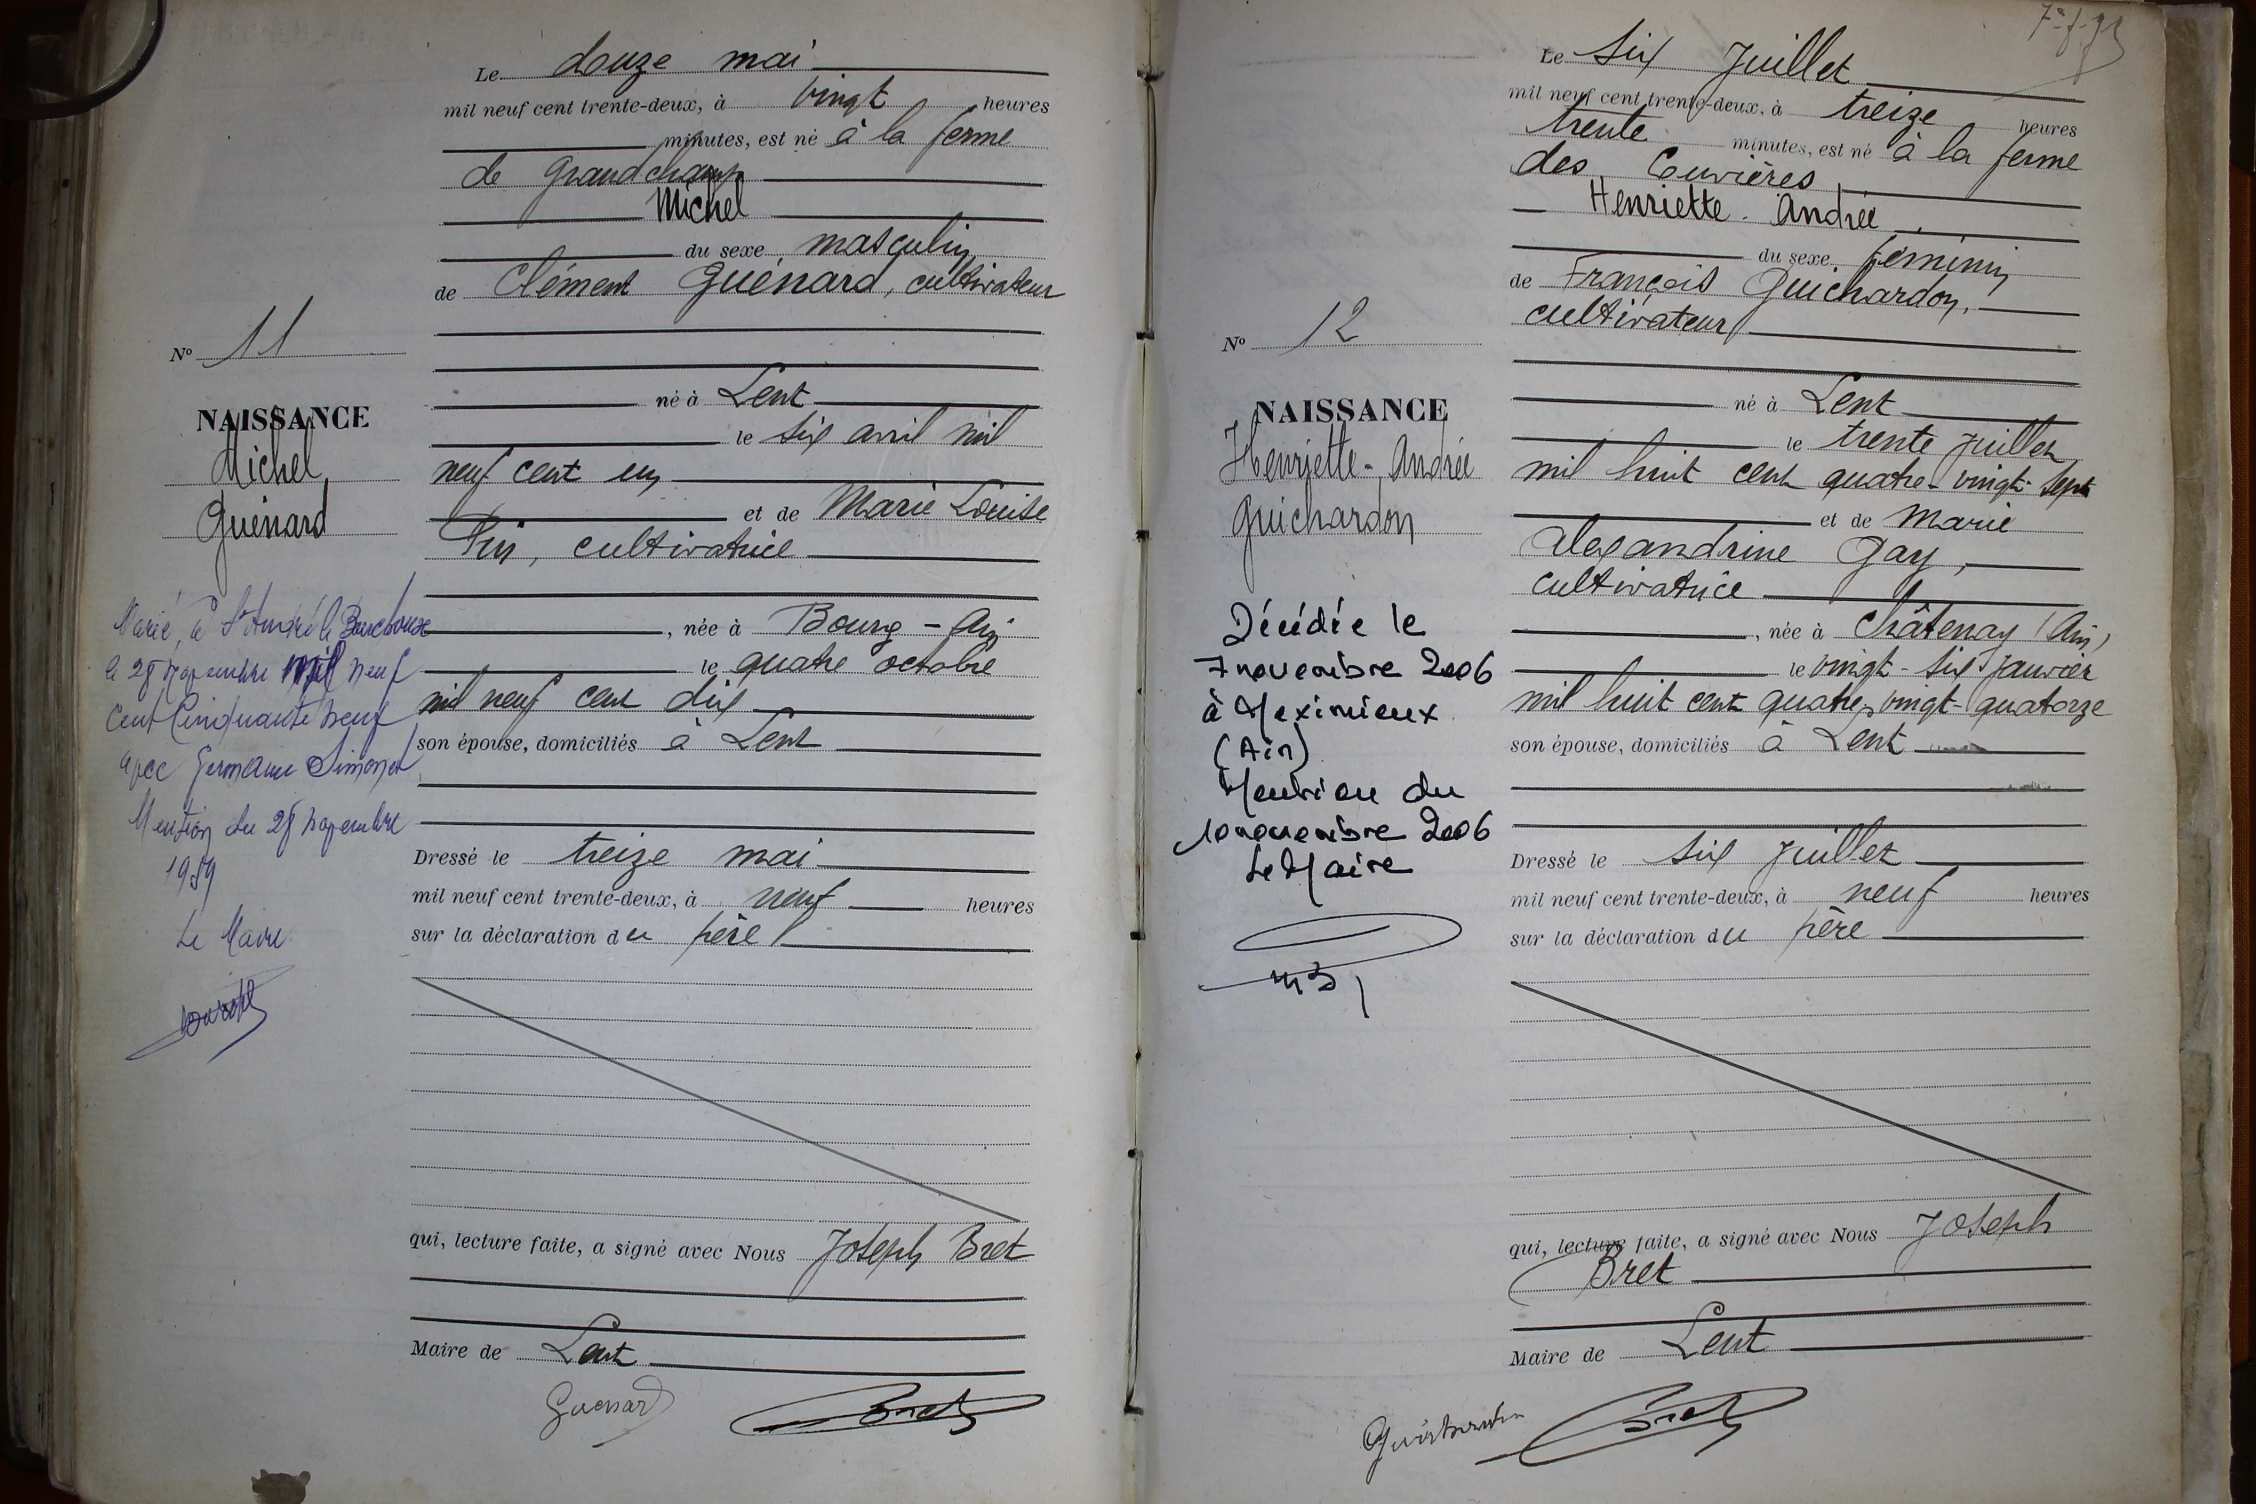 Le douze mai
mil neuf cent trente-deux, à vingt heures
minutes, est né à la ferme
de Grandchamp
Michel
du sexe masculin
de Clément Guénard, cultivateur
né à Lent
le six avril mil
neuf cent un
et de Marie Louise
Pin, cultivatrice
, née à Bourg - Ain
le quatre octobre
mil neuf cent dix
son épouse, domiciliés à Lent
Dressé le treize mai
mil neuf cent trente-deux, à neuf heures
sur la déclaration du père
qui, lecture faite, a signé avec Nous Joseph Bret
Maire de Lent
Guenard Bret
No 11
NAISSANCE
Michel
Guénard
Marié à St André le Bouchoux
le 28 novembre mil neuf
cent cinquante neuf
avec Germaine Simonet
Mention du 28 novembre
1959
Le Maire
7e f. 
Le six Juillet
mil neuf cent trente-deux, à treize heures
trente minutes, est né à la ferme
des Cuvières
Henriette - Andrée
du sexe féminin
de François Guichardon,
cultivateur
né à Lent
le trente juillet
mil huit cent quatre-vingt-sept
et de Marie
Alexandrine Gay,
cultivatrice
, née à Châtenay (Ain)
le vingt-six janvier
mil huit cent quatre-vingt-quatorze
son épouse, domiciliés à Lent
Dressé le six Juillet
mil neuf cent trente-deux, à neuf heures
sur la déclaration du père
qui, lecture faite, a signé avec Nous Joseph
Bret
Maire de Lent
Guichardon Bret
No 12
NAISSANCE
Henriette-Andrée
Guichardon
Décédée le
7 novembre 2006
à Meximieux
(Ain)
Mention du
10 novembre 2006
Le Maire